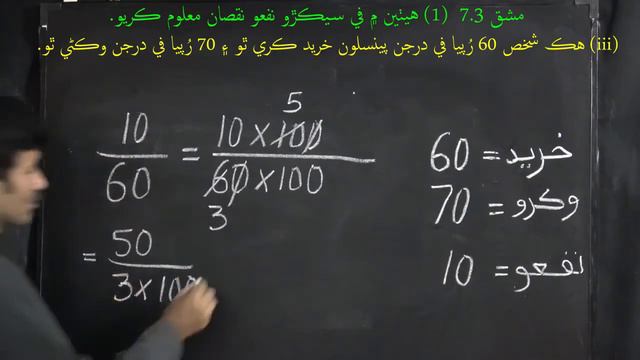 مشق 7.3 (1) هيٺين ۾ في سيڪڙو نفعو نقصان معلوم ڪريو.
(iii) هڪ شخص 60 رُپيا في درجن پينسلون خريد ڪري ٿو ۽ 70 رُپيا في درجن وڪڻي ٿو.
5
10/60 = 10 x 100/60 x 100
3
= 50/3 x 100
خريد = 60
وڪرو = 70
نفعو = 10